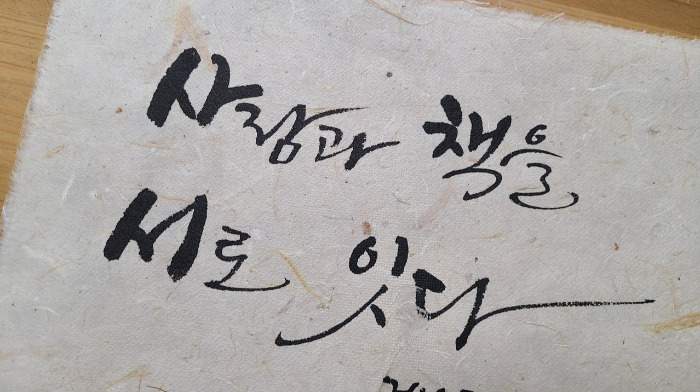 사람과 책을
서로 잇다